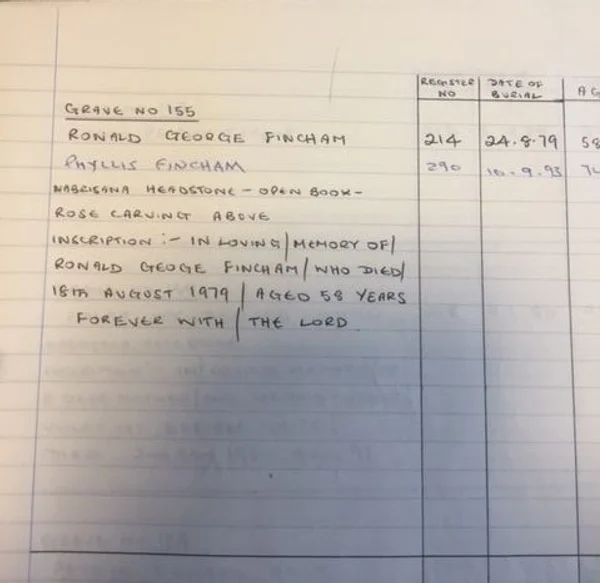 REGISTER NO DATE OF BURIAL AG
GRAVE NO 155
RONALD GEORGE FINCHAM 214 24.8.79 58
PHYLLIS FINCHAM 290 10.9.93
NABRISANA HEADSTONE - OPEN BOOK -
ROSE CARVING ABOVE
INSCRIPTION :- IN LOVING/MEMORY OF/
RONALD GEOGE FINCHAM/WHO DIED/
18TH AUGUST 1979/AGED 58 YEARS
FOREVER WITH/THE LORD